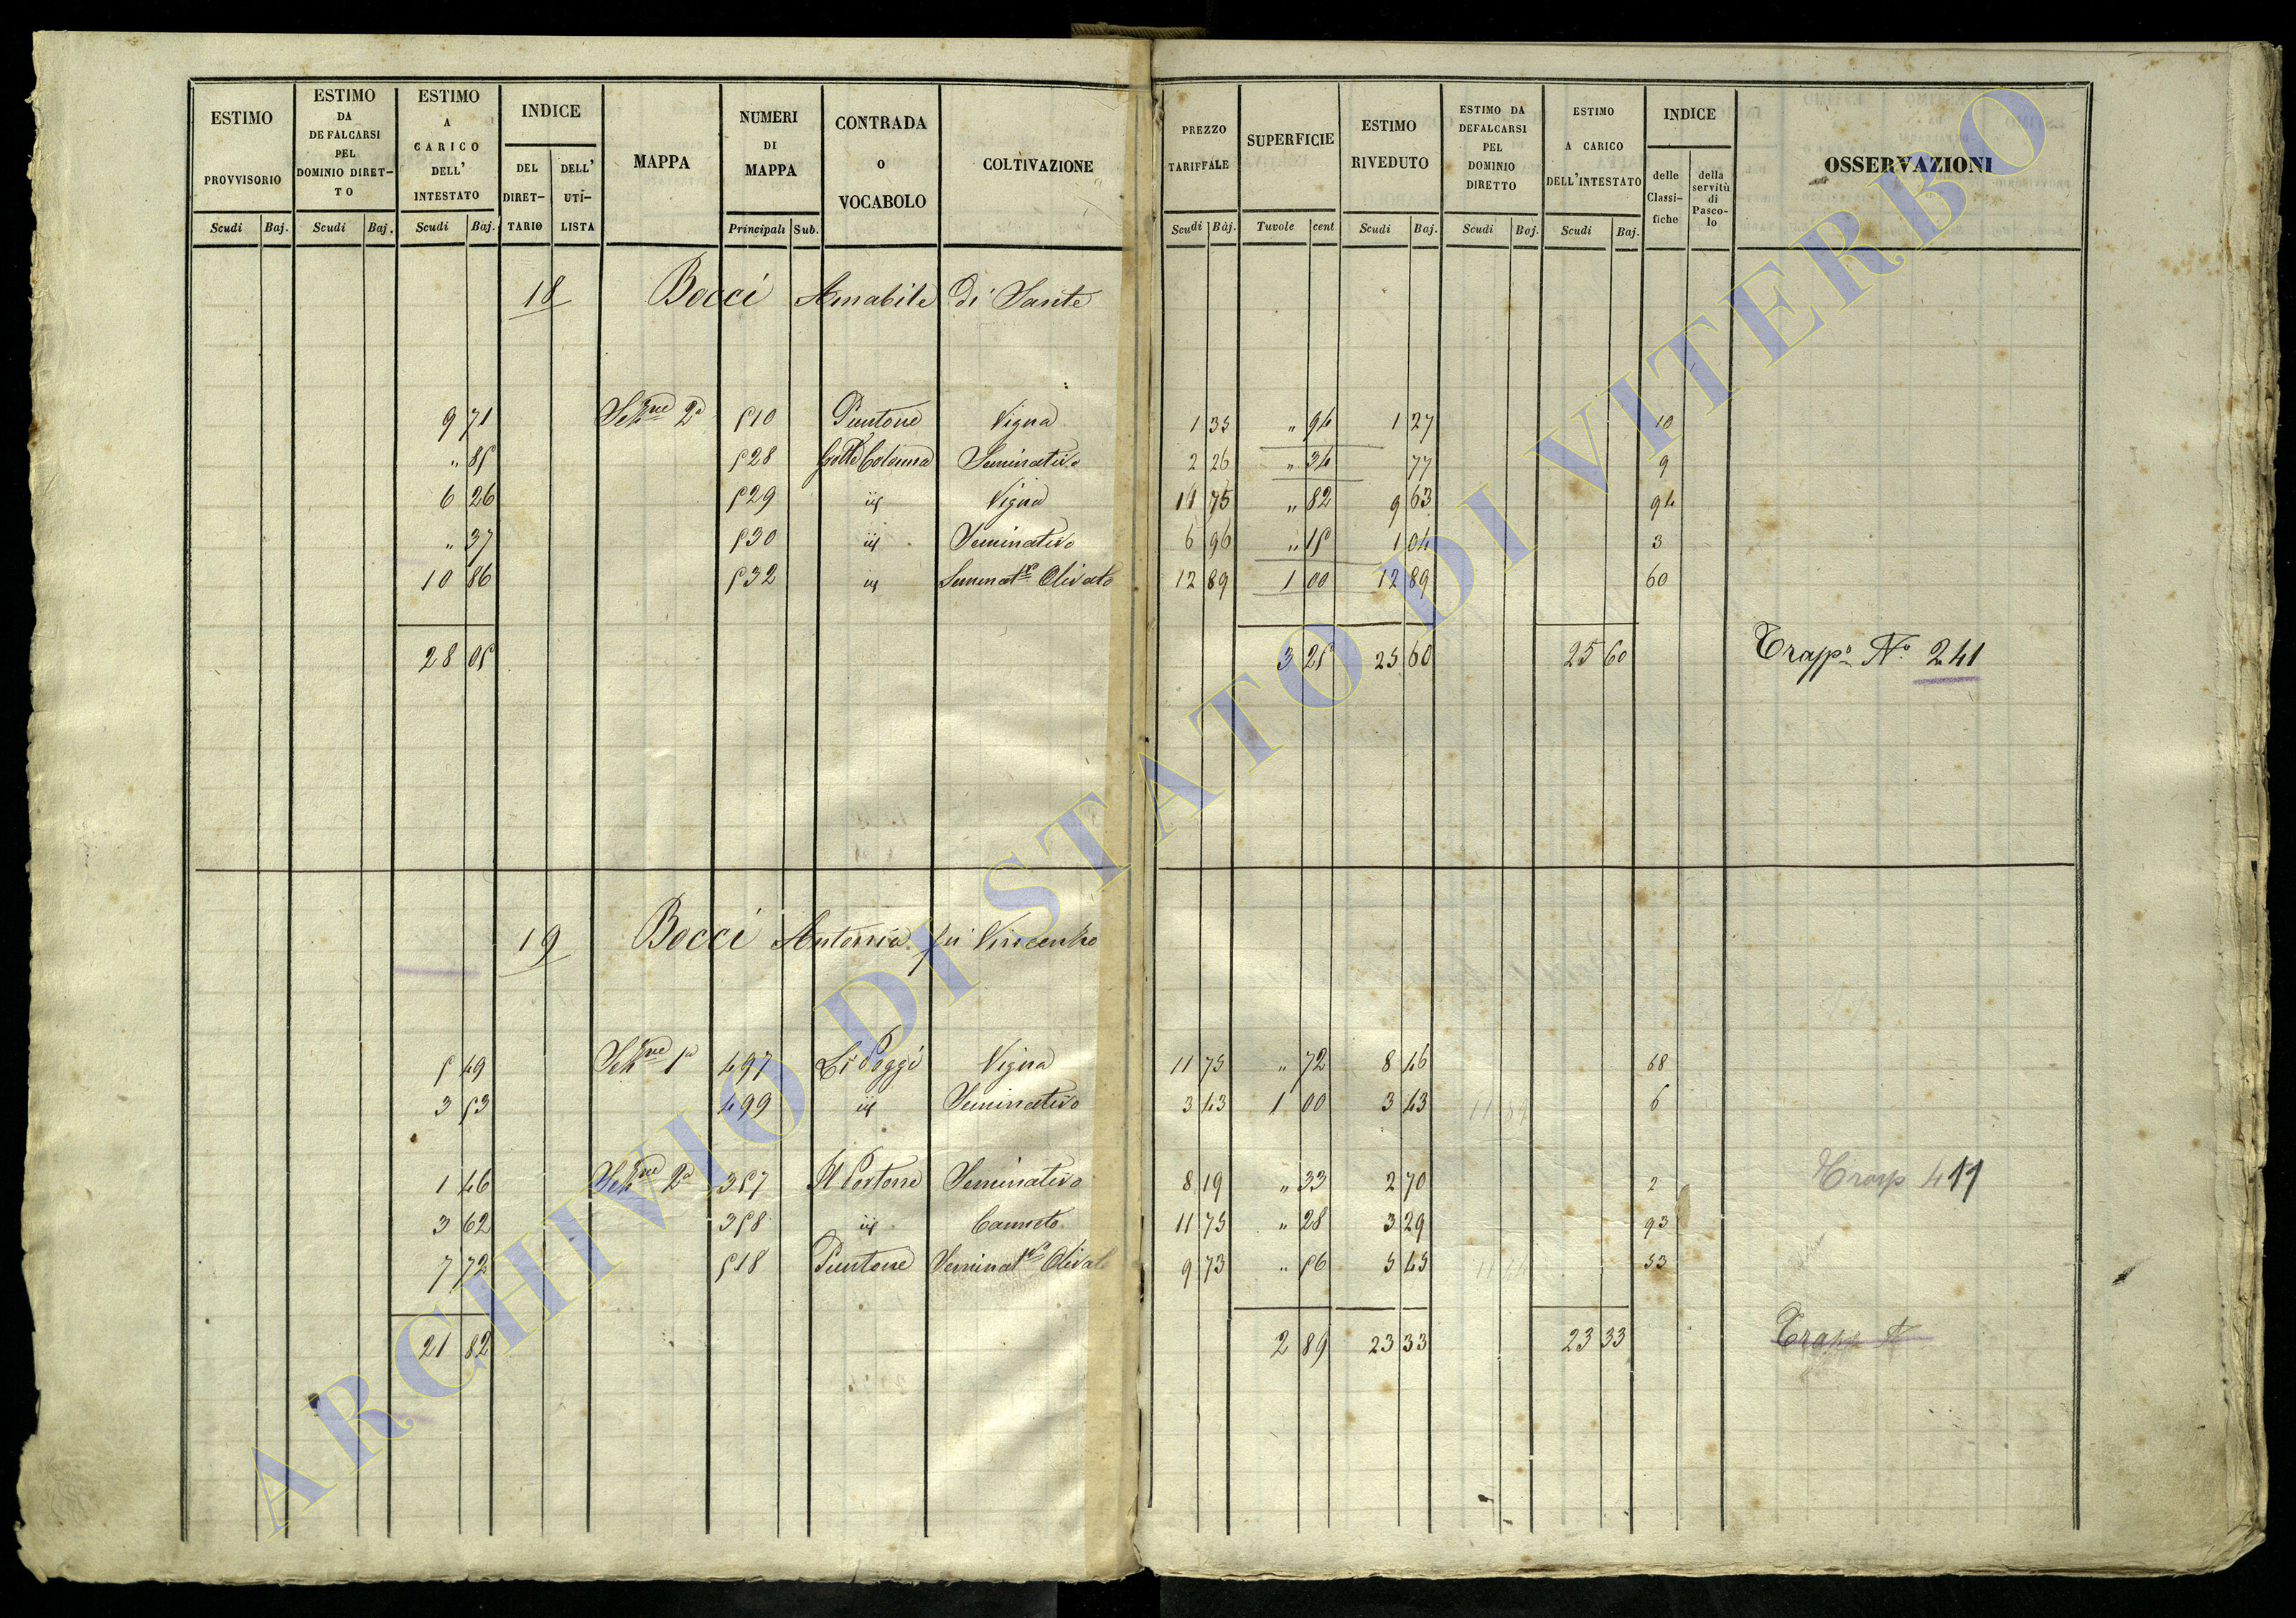 ESTIMO PROVVISORIO | ESTIMO DA DEFALCARSI PEL DOMINIO DIRETTO | ESTIMO A CARICO DELL' INTESTATO | INDICE | MAPPA | NUMERI DI MAPPA | CONTRADA O VOCABOLO | COLTIVAZIONE | PREZZO TARIFFALE | SUPERFICIE | ESTIMO RIVEDUTO | ESTIMO DA DEFALCARSI PEL DOMINIO DIRETTO | ESTIMO A CARICO DELL'INTESTATO | INDICE | OSSERVAZIONI
DEL DIRETTARIO | DELL' UTILISTA | delle Classifiche | della servitù di Pascolo
Scudi | Baj. | Scudi | Baj. | Scudi | Baj. | Principali | Sub. | Scudi | Baj. | Tavole | cent | Scudi | Baj. | Scudi | Baj. | Scudi | Baj.
18 Bocci Amabile di Sante
9 71 | Sezne 2a | 510 | Puntone | Vigna | 1 35 | " 94 | 1 27 | 10
" 85 | 528 | Grotte Colonna | Seminativo | 2 26 | " 34 | 77 | 9
6 26 | 529 | id | Vigna | 11 75 | " 82 | 9 63 | 94
" 37 | 530 | id | Seminativo | 6 96 | " 15 | 1 04 | 3
10 86 | 532 | id | Seminatvo Olivato | 12 89 | 1 00 | 12 89 | 60
28 05 | 3 25 | 25 60 | 25 60 | Trasp.o N.o 241
19 Bocci Antonia fu Vincenzo
5 49 | Sezne 1a | 497 | Li Poggi | Vigna | 11 75 | " 72 | 8 46 | 68
3 53 | 499 | id | Seminativo | 3 43 | 1 00 | 3 43 | 6
1 46 | Sezne 2a | 357 | Il Portone | Seminativo | 8 19 | " 33 | 2 70 | 2 | Trasp 411
3 62 | 358 | id | Canneto | 11 75 | " 28 | 3 29 | 93
7 72 | 518 | Puntone | Seminatvo Olivato | 9 73 | " 56 | 5 45 | 53
21 82 | 2 89 | 23 33 | 23 33 | Trasp N
ARCHIVIO DI STATO DI VITERBO